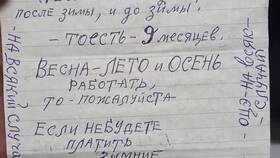 после зимы, и до зимы.
- тоесть - 9 месяцев.
Весна-лето и осень
работать,
то-пожалуйста
Если небудете
платить
зимние
-на всякий случа
-на всяк-
случай